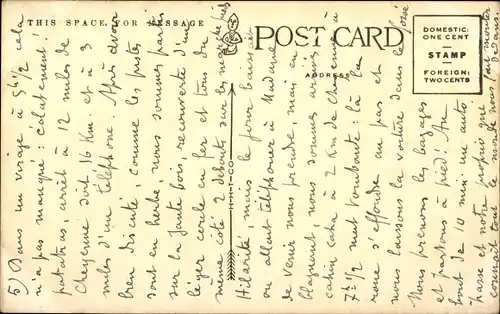 THIS SPACE FOR MESSAGE
POST CARD
ADDRESS
DOMESTIC:
ONE CENT
STAMP
FOREIGN:
TWO CENTS
H-H-T-CO
5) Dans un virage à 5h 1/2 cela
n'a pas manqué : éclatement!
patatras, arrêt à 12 miles de
Cheyenne soit 16 Km. et à 3
miles d'un téléphone. Après avoir
bien discuté, comme les pistes
sont en herbe, nous sommes partis
sur la Jante bois recouverte d'un
léger cercle en fer et tous du
même côté 2 debouts sur les marche pieds
Hilarité mais le jour baissait
on allait téléphoner à Madame
de venir nous prendre, mais en
blaguant, nous sommes arrivés
cahin caha à 2 Km de Cheyenne à
7h 1/2 nuit tombante: là la
roue s'effondre un pas et
nous laissons la voiture dans le fossé
Nous prenons les bagages
et partons à pied! Au
bout de 10 min. une auto
passe et notre proprio
connait tout le monde nous fait monter
dedans